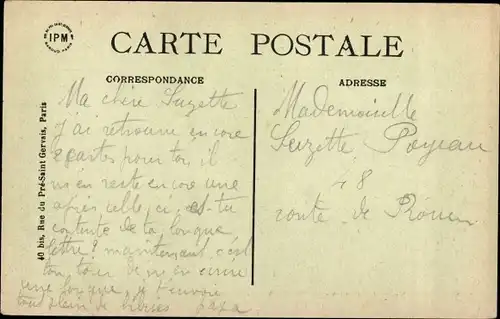 IPM
CARTE POSTALE
CORRESPONDANCE
ADRESSE
40 bis, Rue du Pré-Saint Gervais, Paris
Ma chère Suzette
j'ai retrouve encore
cartes pour toi il
m'en reste encore une
après celle ci es-tu
contente de ta longue
lettre? maintenant c'est
ton tour de m'en
une longue, je t'envoie
tout plein de bises papa
Mademoiselle
Suzette
48
route de Rouen